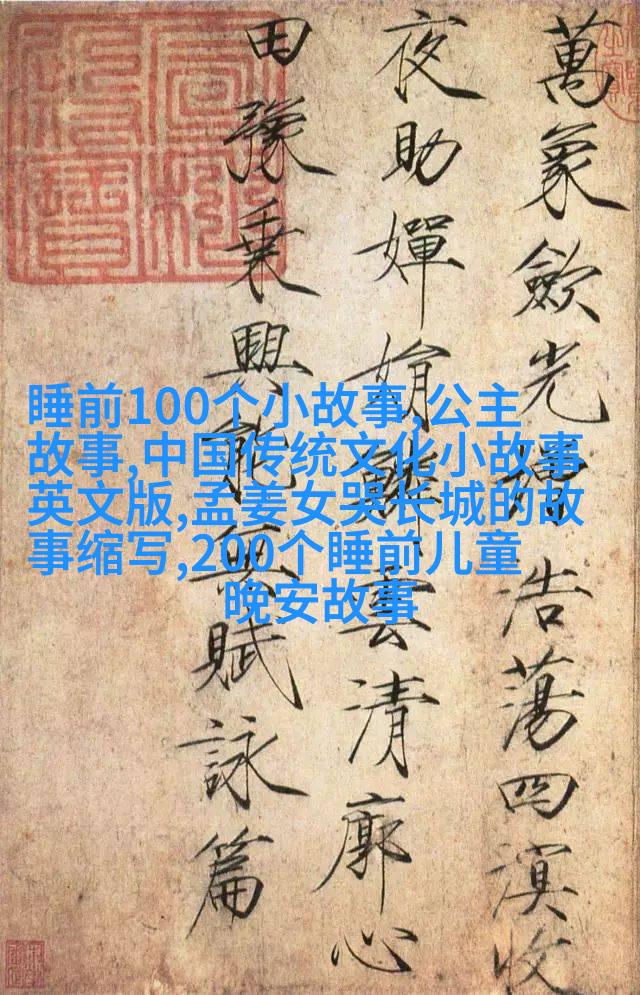 萬象歛光增浩蕩四溟收
夜助嬋娟鱗雲清廓心
田豫乘興能無賦詠篇
睡前100个小故事,公主
故事,中国传统文化小故事
英文版,孟姜女哭长城的故
事缩写,200个睡前儿童
晚安故事